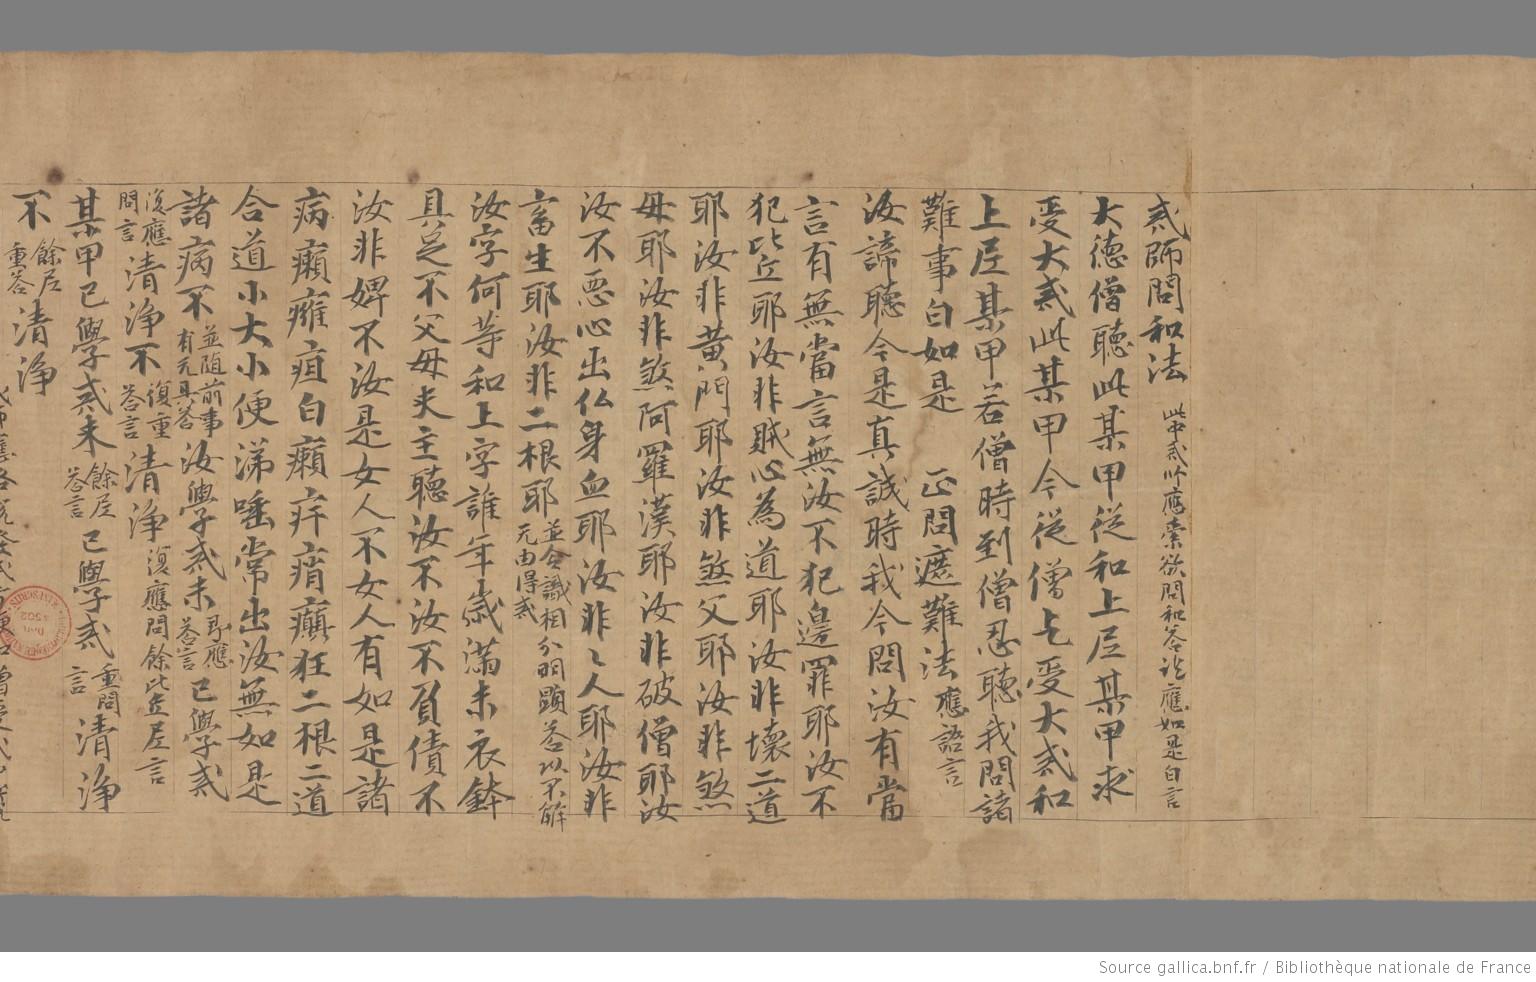 戒師問和法 此中戒師應索欲問和答訖應如是白言
大德僧聽此某甲從和上尼某甲求
受大戒此某甲今從僧乞受大戒和
上尼某甲若僧時到僧忍聽我問諸
難事白如是 正問遮難法 應語言
汝諦聽今是真誠時我今問汝有當
言有無當言無汝不犯邊罪耶汝不
犯比丘耶汝非賊心為道耶汝非壞二道
耶汝非黃門耶汝非煞父耶汝非煞
母耶汝非煞阿羅漢耶汝非破僧耶汝
汝不惡心出仏身血耶汝非〻人耶汝非
畜生耶汝非二根耶 並令識相分明顯答以不解 元由得戒
汝字何等和上字誰年歲滿未衣鉢
具足不父母夫主聽汝不汝不負債不
汝非婢不汝是女人不女人有如是諸
病癩癰疽白癩疥痟癲狂二根二道
合道小大小便涕唾常出汝無如是
諸病不 並随前事 有无具答 汝學戒未 即應 答言 已學戒
復應 問言 清淨不 復重 答言 清淨 復應問餘比丘尼言
某甲已學戒未 餘尼 答言 已學戒 重問 言 清淨
不 餘尼 重答 清淨
Source gallica.bnf.fr / Bibliothèque nationale de France